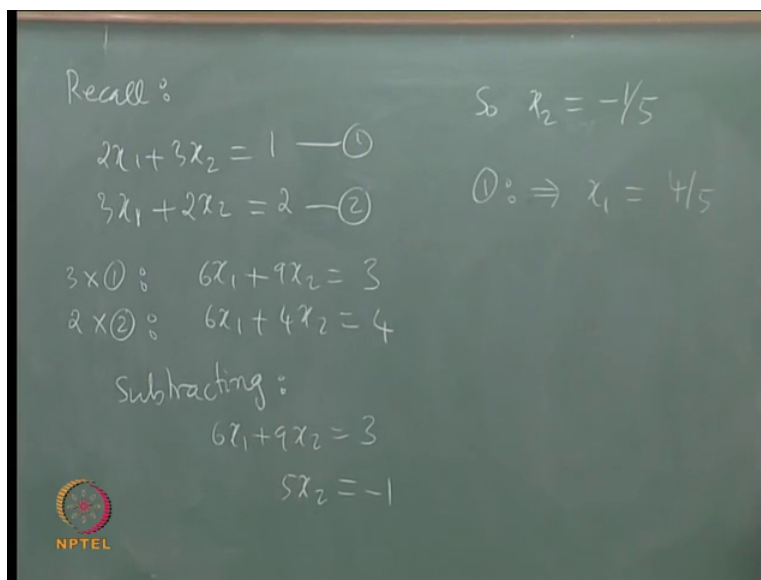 Recall:
2x₁+3x₂ = 1 —①
3x₁+2x₂ = 2 —②
3×①: 6x₁+9x₂ = 3
2×②: 6x₁+4x₂ = 4
Subtracting:
6x₁+9x₂ = 3
5x₂ = -1
So x₂ = -1/5
①: ⇒ x₁ = 4/5
NPTEL